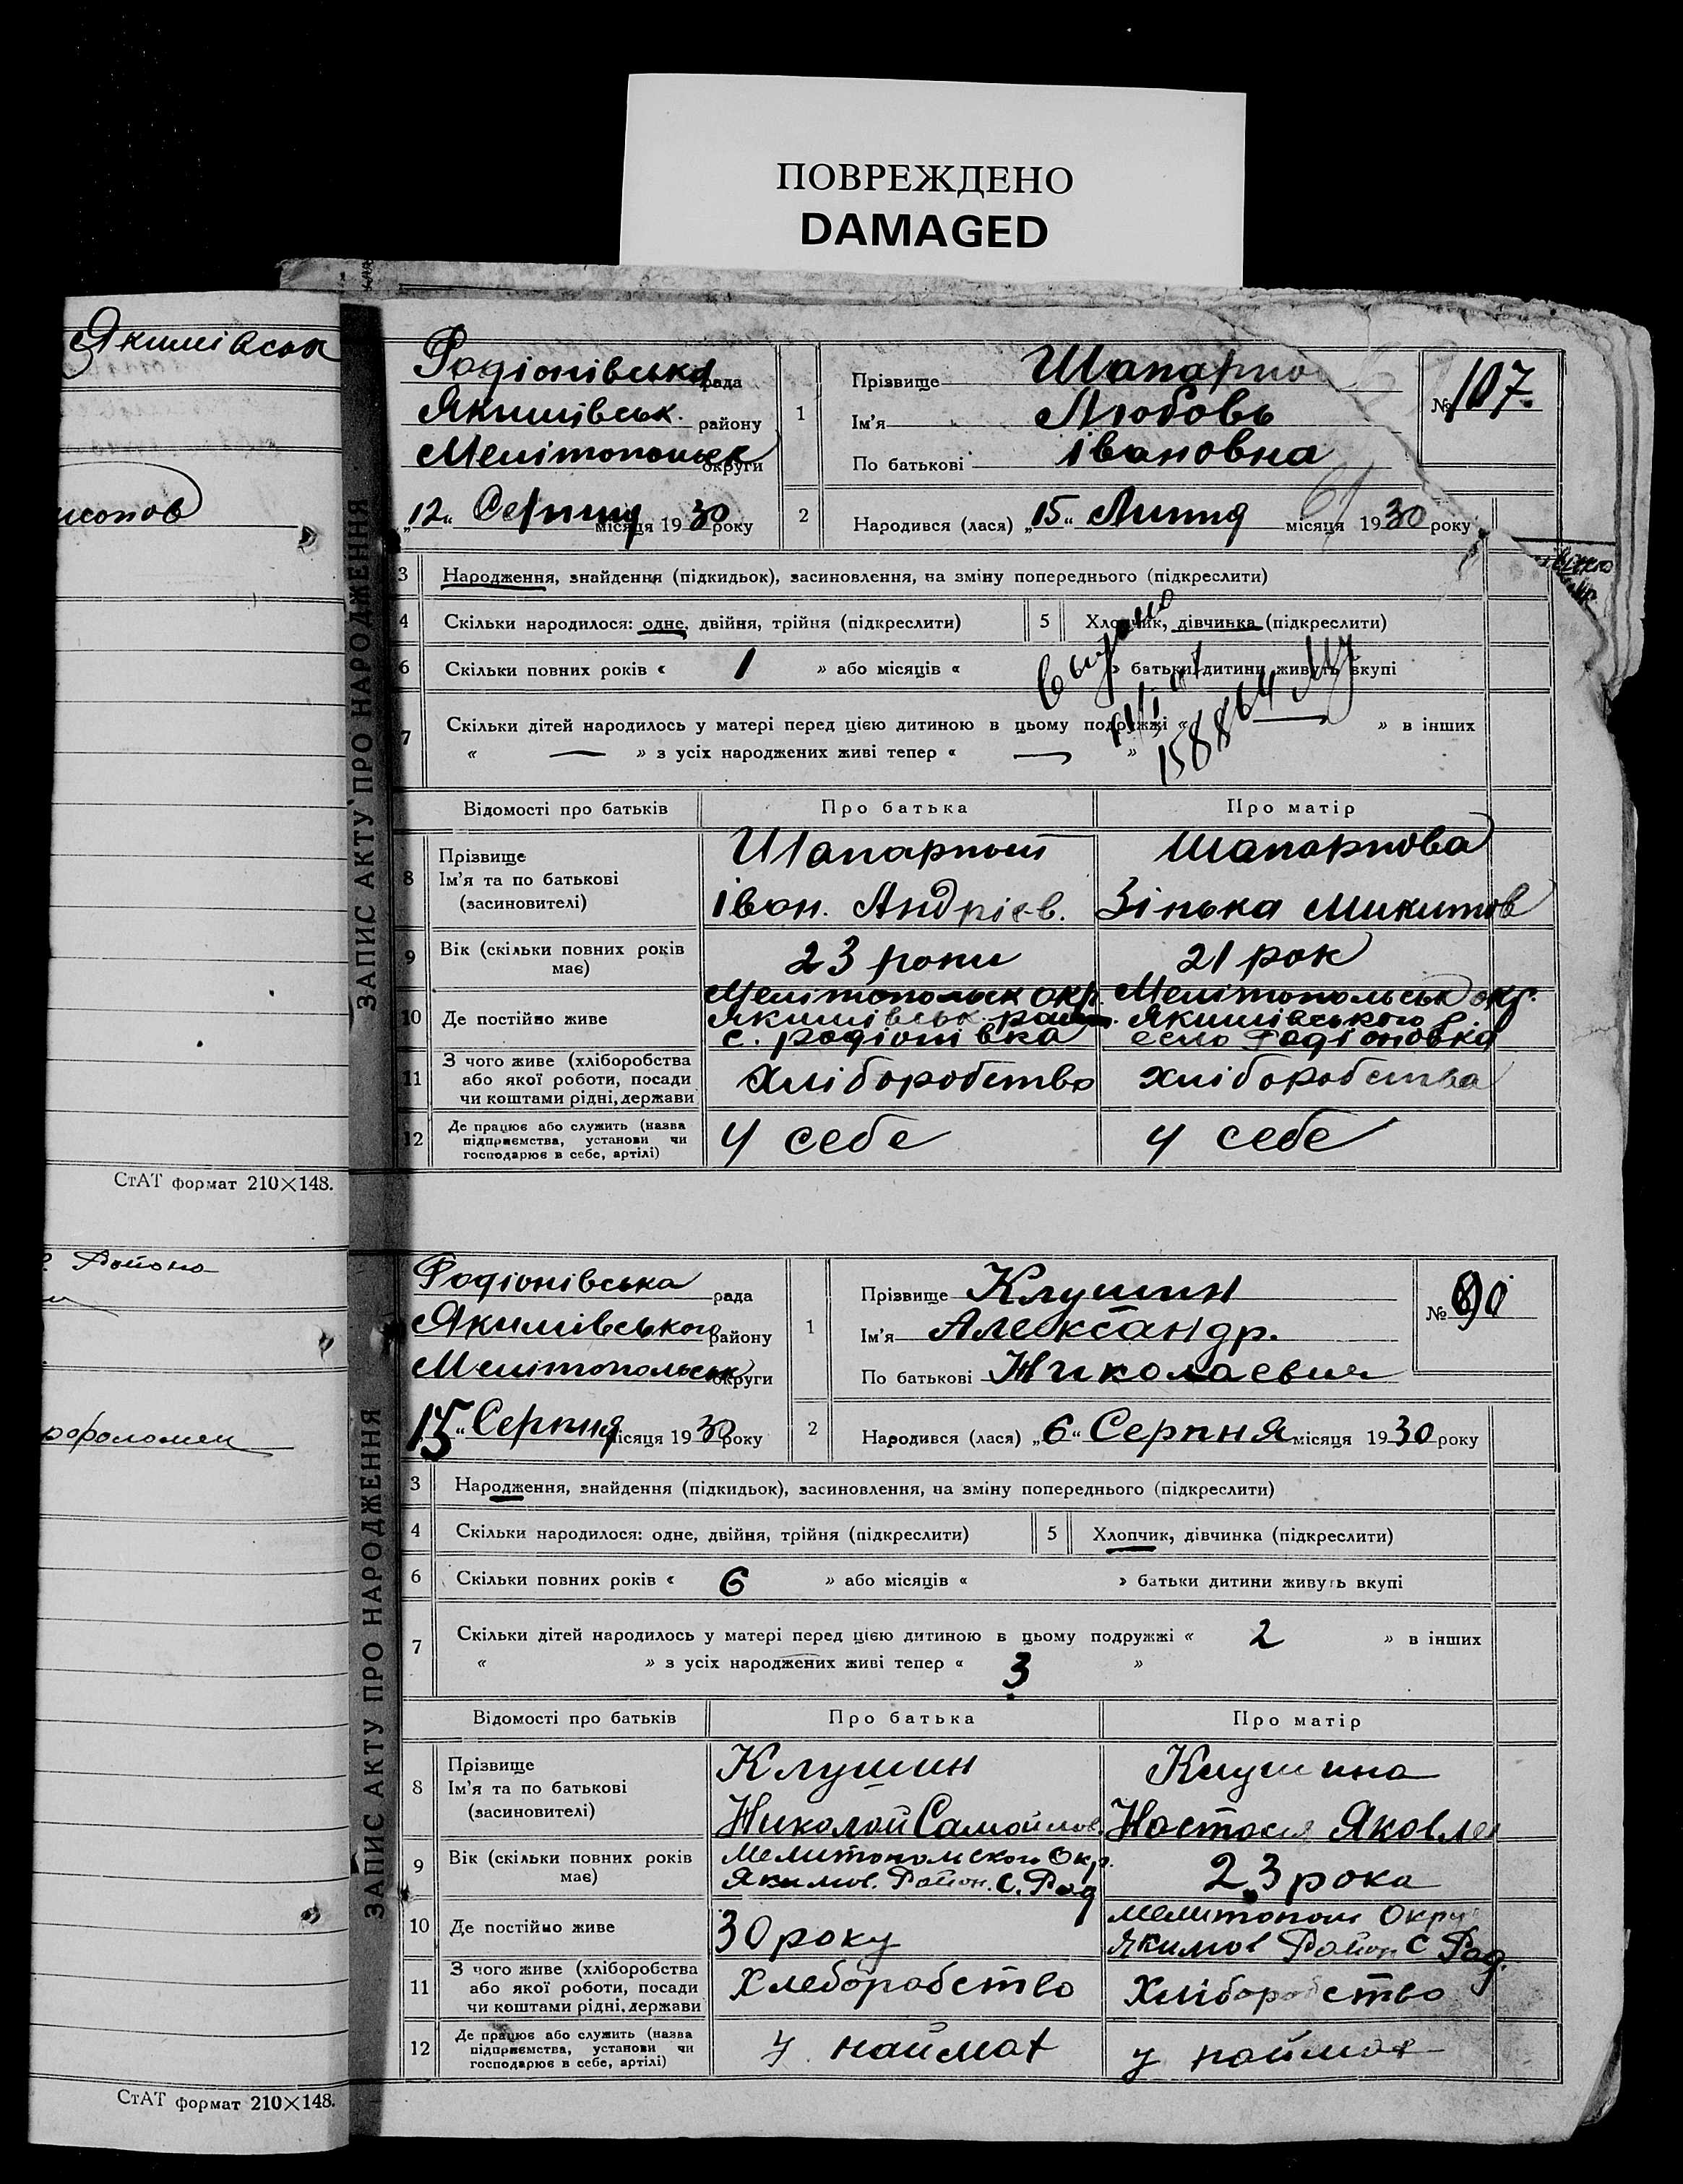 ПОВРЕЖДЕНО
DAMAGED
Якимівськ
СтАТ формат 210×148.
Района
СтАТ формат 210×148.
ЗАПИС АКТУ ПРО НАРОДЖЕННЯ
Родіонівська рада
Якимівськ. району
Мелітопольськ округи
„12“ Серпня місяця 1930 року
1
Прізвище Шапарно
Ім'я Любовь
По батькові Івановна
№ 107.
2
Народився (лася) „15“ Липня місяця 1930 року
3 Народження, знайдення (підкидьок), засиновлення, на зміну попереднього (підкреслити)
4 Скільки народилося: одне, двійня, трійня (підкреслити)
5 Хлопчик, дівчинка (підкреслити)
6 Скільки повних років « 1 » або місяців « » батьки дитини живуть вкупі
7 Скільки дітей народилось у матері перед цією дитиною в цьому подружжі « — » в інших
« — » з усіх народжених живі тепер « — »
Відомості про батьків Про батька Про матір
8 Прізвище
Ім'я та по батькові
(засиновителі)
Шапарной
Іван. Андрієв.
Шапарнова
Зінька Микитов
9 Вік (скільки повних років
має)
23 роки
21 рок
10 Де постійно живе
Мелітопольськ окр.
Якимівськ. район.
с. Родіонівка
Мелітопольськ окр.
Якимівського р.
село Родіоновка
11 З чого живе (хліборобства
або якої роботи, посади
чи коштами рідні, держави
Хліборобство
хліборобства
12 Де працює або служить (назва
підприємства, установи чи
господарює в себе, артілі)
У себе
У себе
ЗАПИС АКТУ ПРО НАРОДЖЕННЯ
Родіонівська рада
Якимівського району
Мелітопольськ округи
15“ Серпня місяця 1930 року
1
Прізвище Клушин
Ім'я Александр.
По батькові Николаевич
№ 90
2
Народився (лася) „6“ Серпня місяця 1930 року
3 Народження, знайдення (підкидьок), засиновлення, на зміну попереднього (підкреслити)
4 Скільки народилося: одне, двійня, трійня (підкреслити)
5 Хлопчик, дівчинка (підкреслити)
6 Скільки повних років « 6 » або місяців « » батьки дитини живуть вкупі
7 Скільки дітей народилось у матері перед цією дитиною в цьому подружжі « 2 » в інших
« » з усіх народжених живі тепер « 3 »
Відомості про батьків Про батька Про матір
8 Прізвище
Ім'я та по батькові
(засиновителі)
Клушин
Николай Самойлов.
Клушина
Настасия Яковле
9 Вік (скільки повних років
має)
Мелитополского Окр.
Якимов. Район. С. Род
23 рока
10 Де постійно живе
30 року
Мелитопол Окру
Якимов Район С Род.
11 З чого живе (хліборобства
або якої роботи, посади
чи коштами рідні, держави
Хлеборобство
Хліборобство
12 Де працює або служить (назва
підприємства, установи чи
господарює в себе, артілі)
у наймах
у наймах